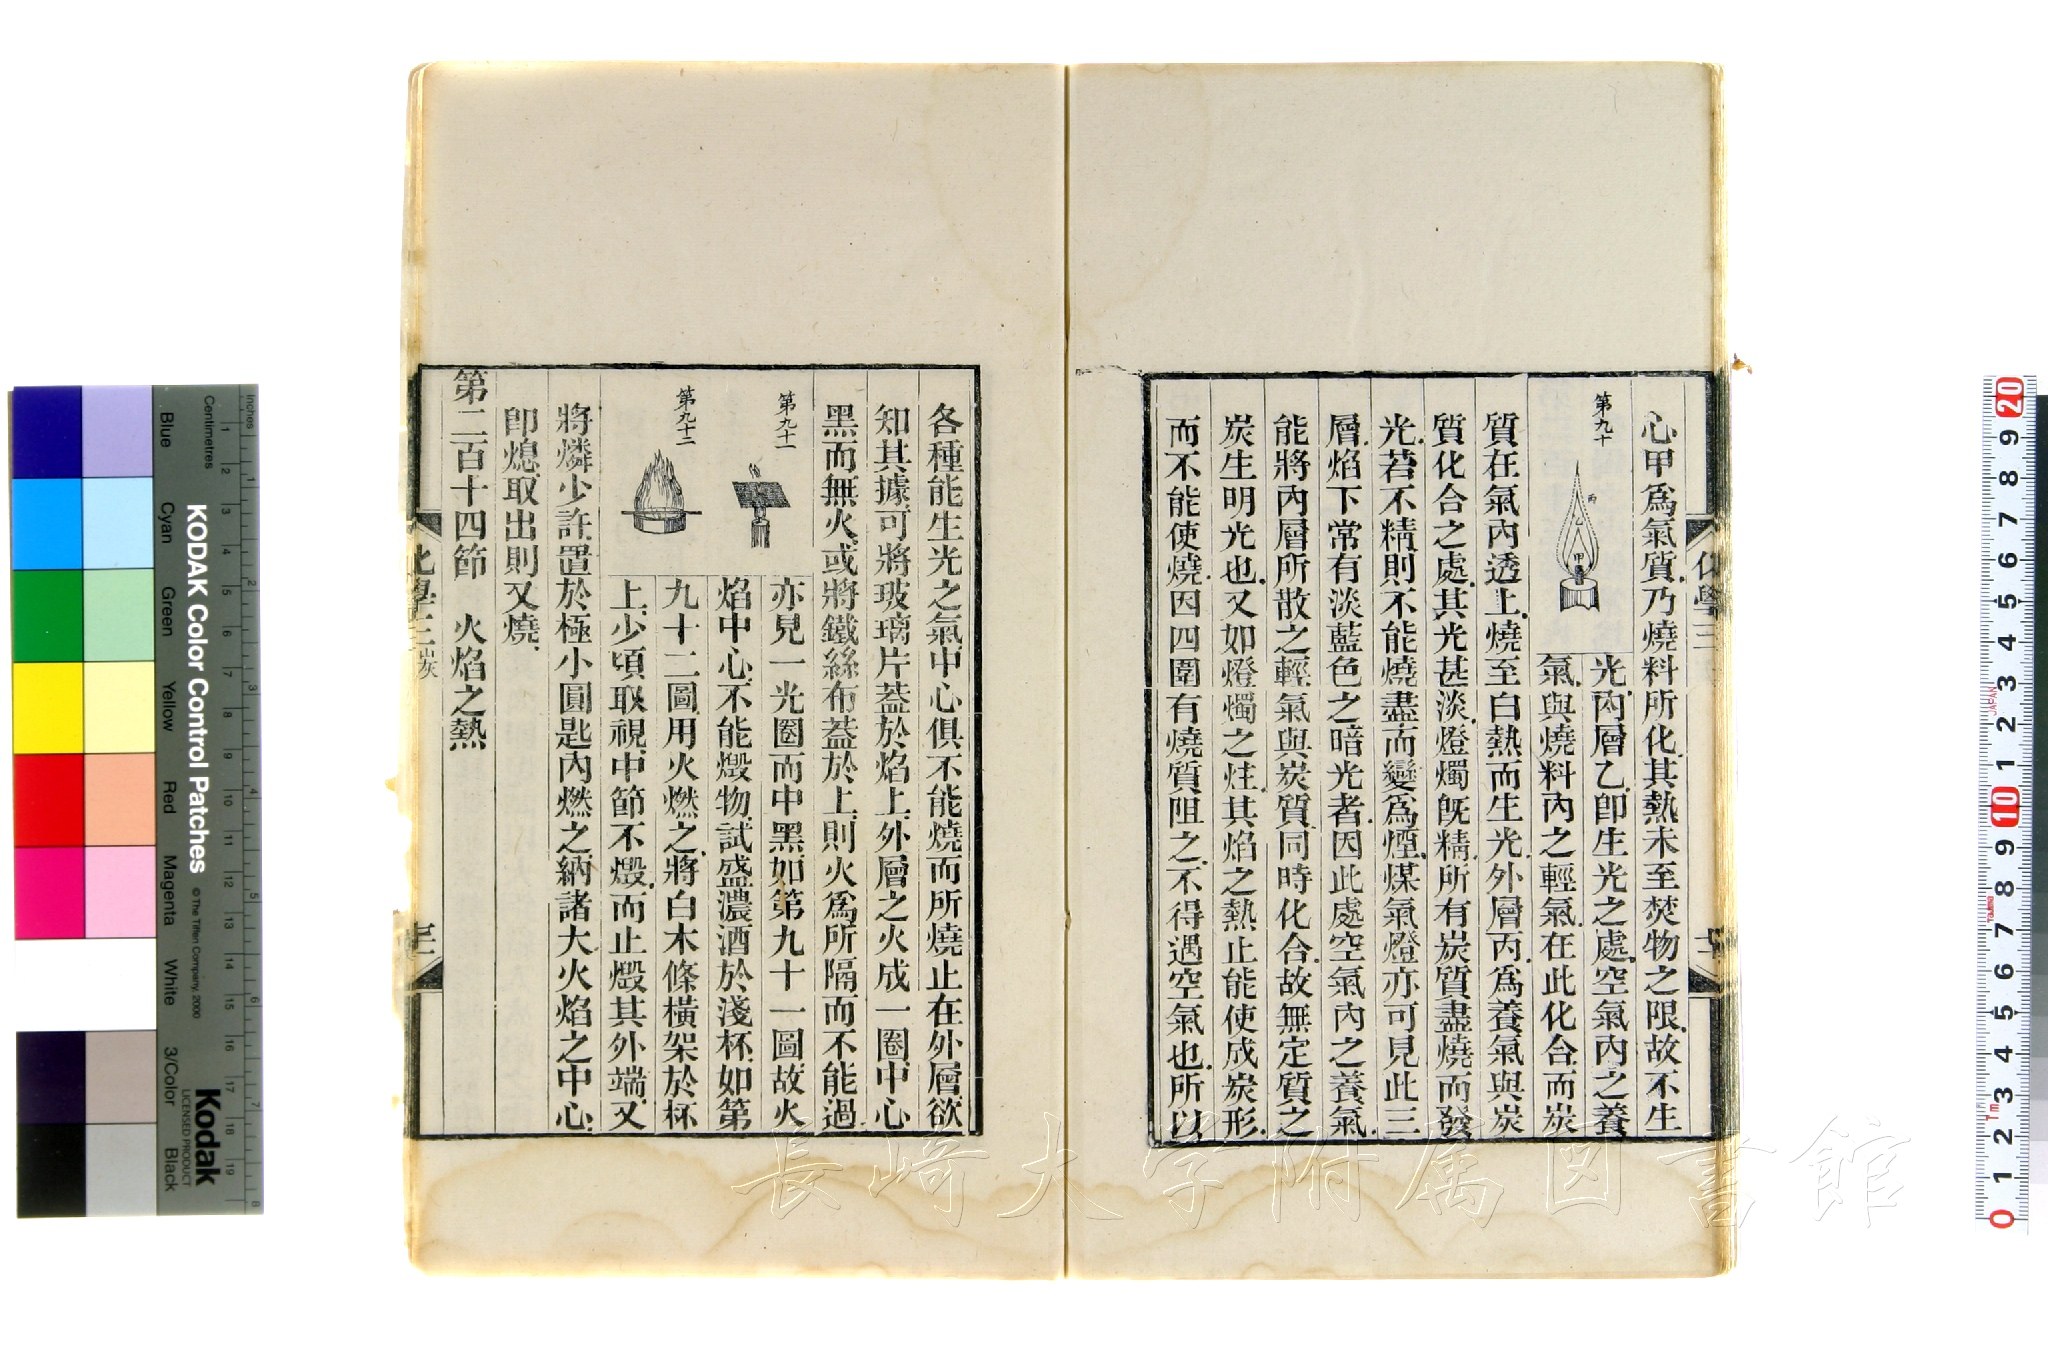 心甲爲氣質乃燒料所化其熱未至焚物之限故不生
第九十
丙
乙
甲
光內層乙卽生光之處空氣內之養
氣與燒料內之輕氣在此化合而炭
質在氣內透上燒至白熱而生光外層丙爲養氣與炭
質化合之處其光甚淡燈燭旣精所有炭質盡燒而發
光若不精則不能燒盡而變爲煙煤氣燈亦可見此三
層焰下常有淡藍色之暗光者因此處空氣內之養氣
能將內層所散之輕氣與炭質同時化合故無定質之
炭生明光也又如燈燭之炷其焰之熱止能使成炭形
而不能使燒因四圍有燒質阻之不得遇空氣也所以
化學三
各種能生光之氣中心俱不能燒而所燒止在外層欲
知其據可將玻璃片蓋於焰上外層之火成一圈中心
黑而無火或將鐵絲布蓋於上則火爲所隔而不能過
第九十一
亦見一光圈而中黑如第九十一圖故火
焰中心不能燬物試盛濃酒於淺杯如第
第九十二
九十二圖用火燃之將白木條橫架於杯
上少頃取視中節不燬而止燬其外端又
將燐少許置於極小圓匙內燃之納諸大火焰之中心
卽熄取出則又燒
第二百十四節 火焰之熱
化學三 炭
長崎大学附属図書館
KODAK Color Control Patches
© The Tiffen Company, 2000
Kodak
LICENSED PRODUCT
Inches
Centimetres
1 2 3 4 5 6 7 8 9 10 11 12 13 14 15 16 17 18 19
Blue
Cyan
Green
Yellow
Red
Magenta
White
3/Color
Black
20 9 8 7 6 5 4 3 2 1 10 9 8 7 6 5 4 3 2 1 0
JAPAN
1m